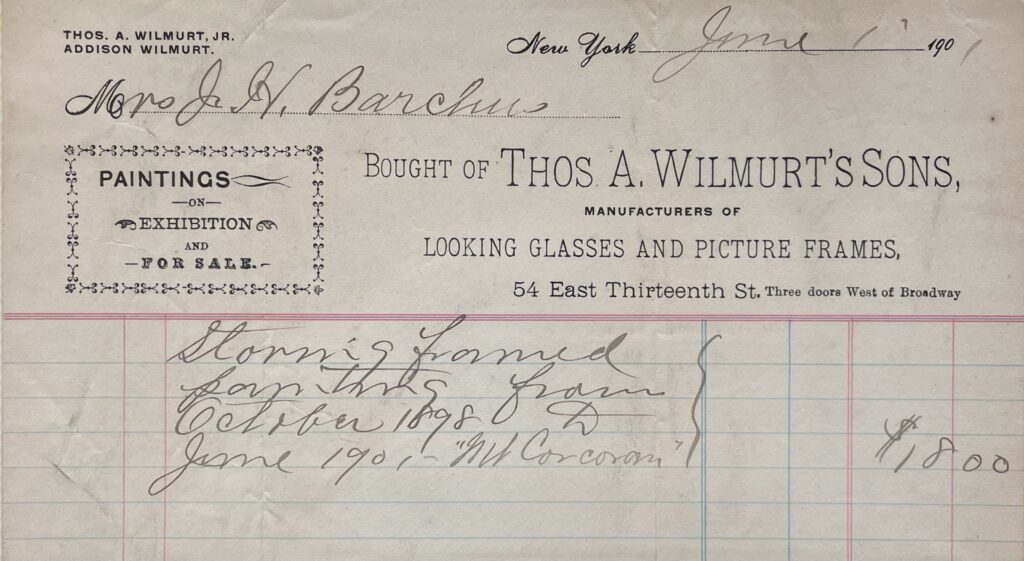 THOS. A. WILMURT, JR.
ADDISON WILMURT.
New York June 1 1901
Mrs J. H. Barchus
PAINTINGS
—ON—
EXHIBITION
AND
—FOR SALE.—
BOUGHT OF THOS. A. WILMURT'S SONS,
MANUFACTURERS OF
LOOKING GLASSES AND PICTURE FRAMES,
54 East Thirteenth St. Three doors West of Broadway
Storing framed
painting from
October 1898 to
June 1901 – "Mt Corcoran" $18 00